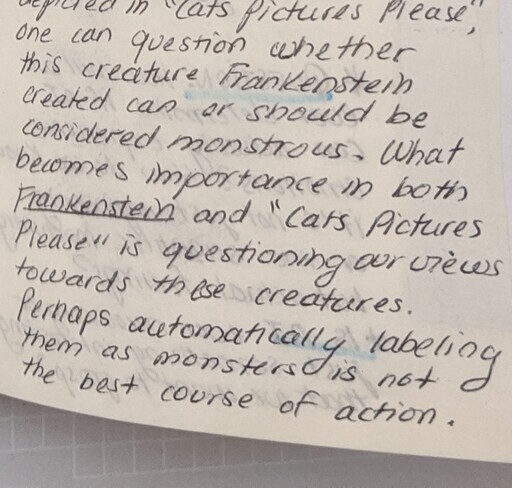 depicted in "Cats Pictures Please",
one can question whether
this creature Frankenstein
created can or should be
considered monstrous. What
becomes importance in both
Frankenstein and "Cats Pictures
Please" is questioning our views
towards these creatures.
Perhaps automatically labeling
them as monsters is not
the best course of action.